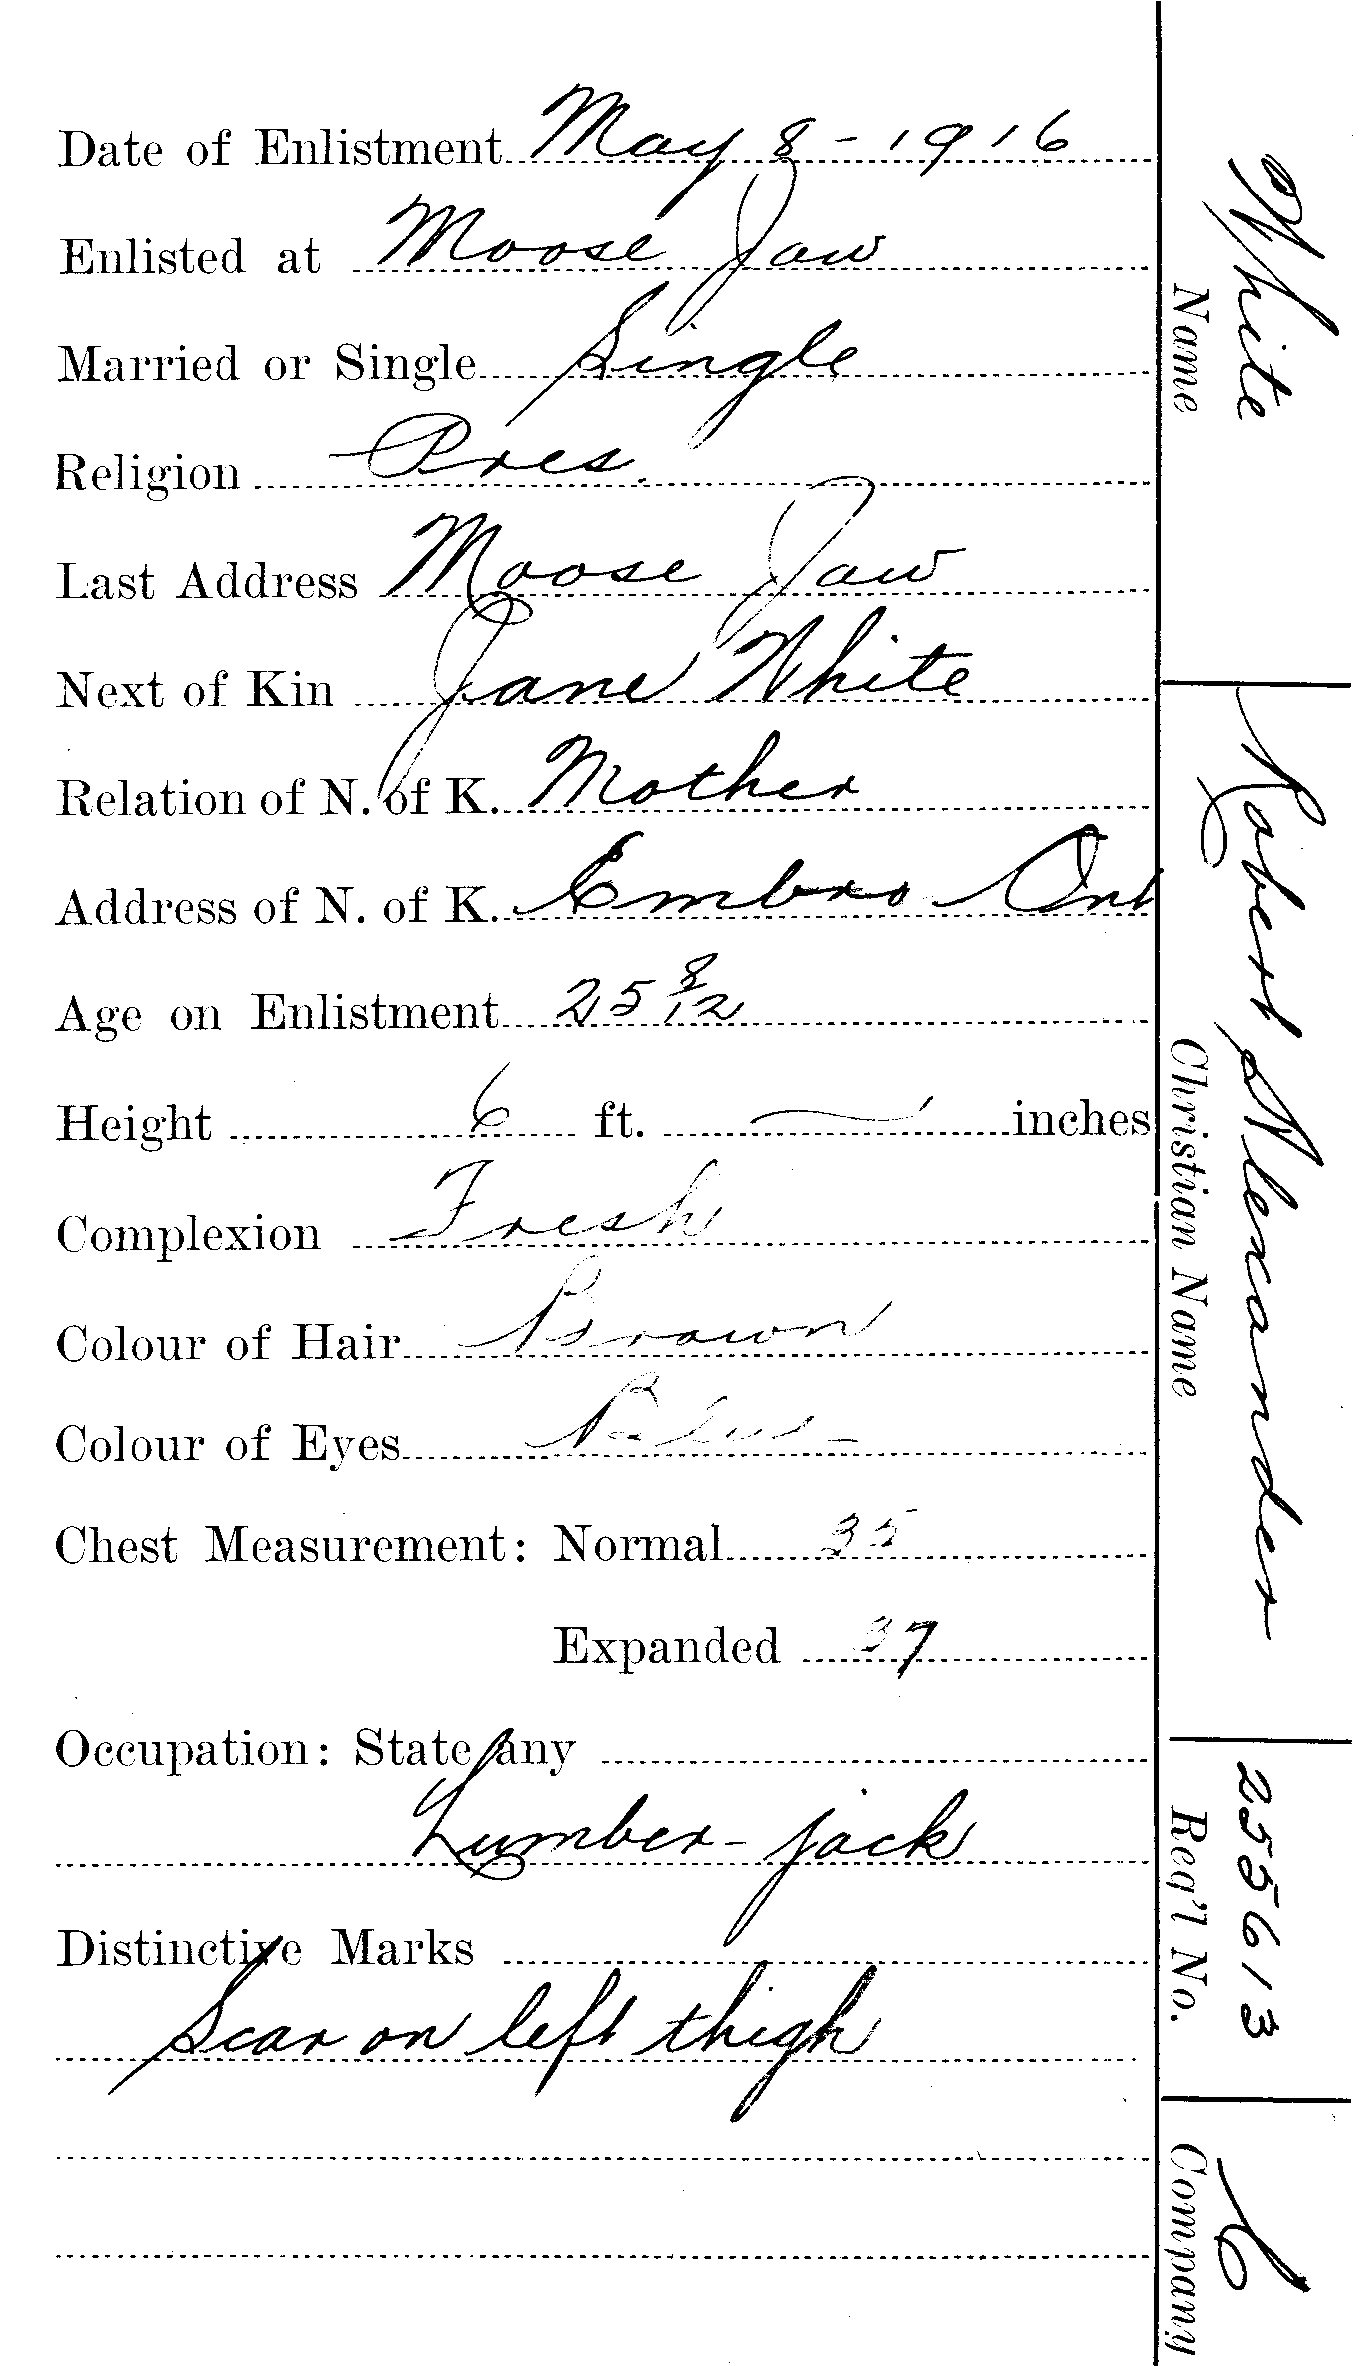 Date of Enlistment May 8 - 1916
Enlisted at Moose Jaw
Married or Single Single
Religion Pres.
Last Address Moose Jaw
Next of Kin Jane White
Relation of N. of K. Mother
Address of N. of K. Embro Ont
Age on Enlistment 25 8/12
Height 6 ft. — inches
Complexion Fresh
Colour of Hair Brown
Colour of Eyes Blue
Chest Measurement: Normal 35
Expanded 37
Occupation: State any
Lumber-jack
Distinctive Marks
Scar on left thigh
White
Name
Robert Alexander
Christian Name
255613
Reg'l No.
C
Company